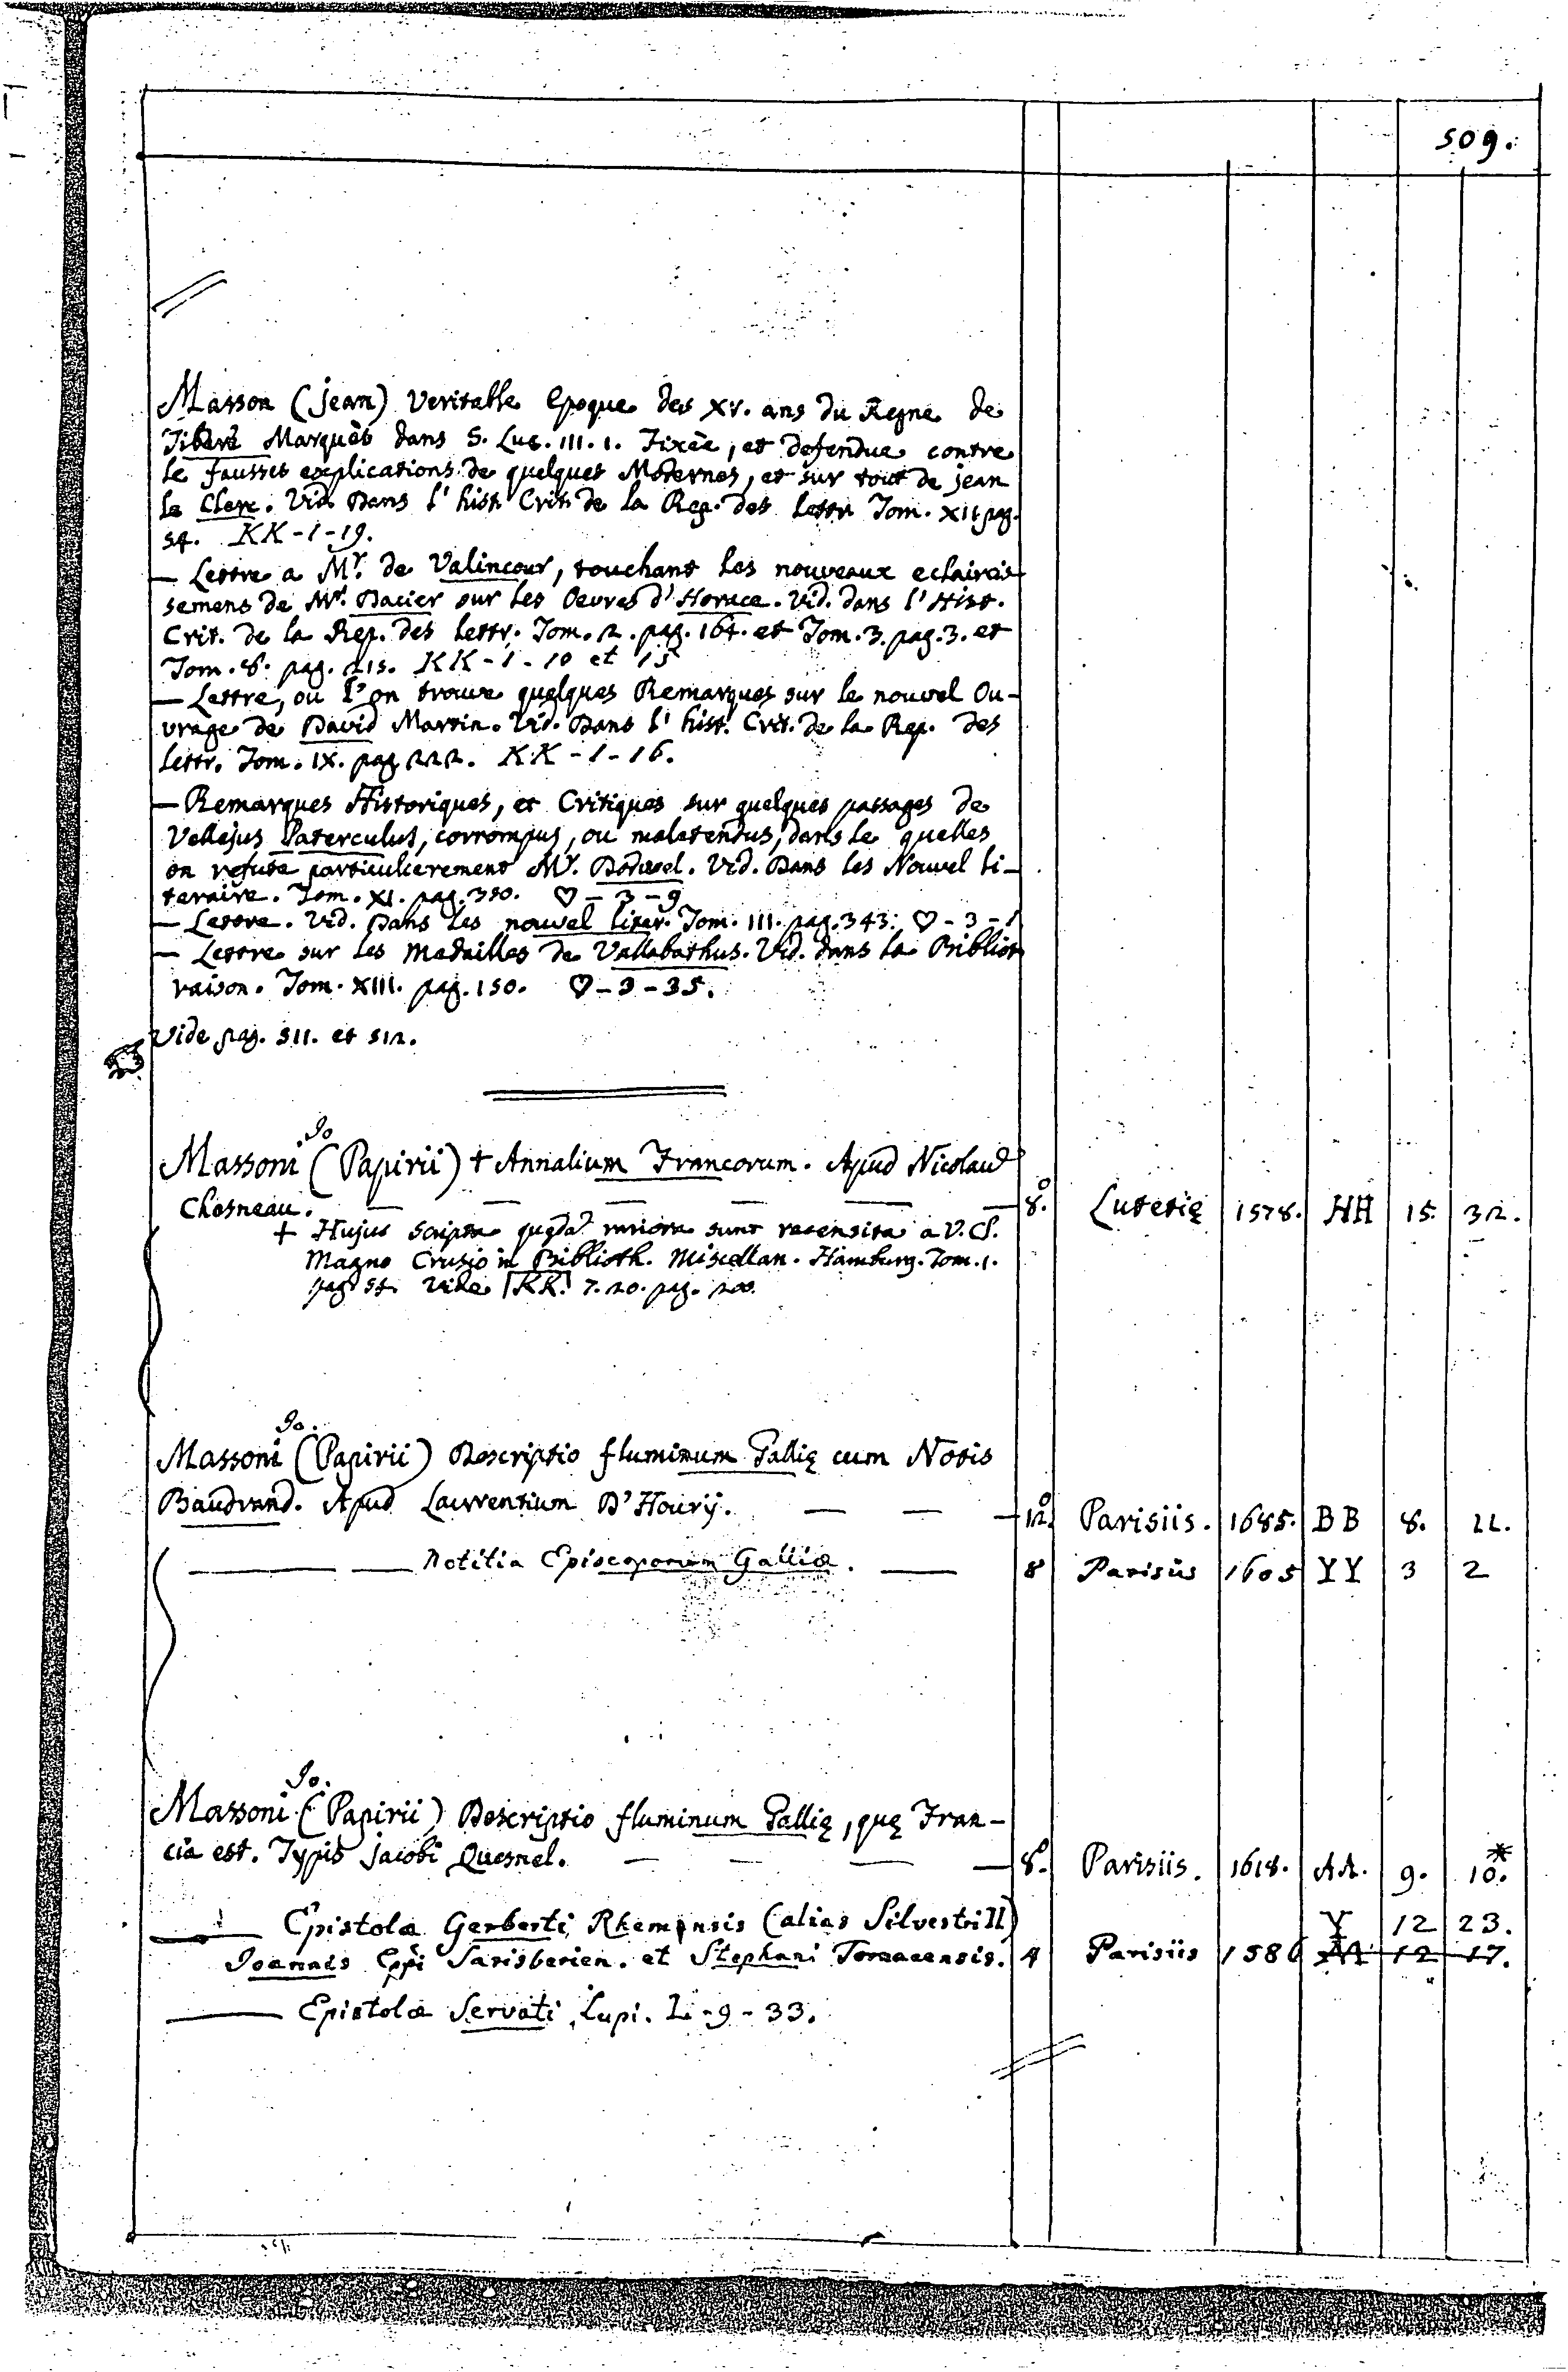 509.
Masson (jean) Veritable Epoque des XV. ans du Regne de
Tibere Marquès dans S. Luc. III. 1. Fixèe, et defendue contre
le fausses explications de quelques Modernes, et sur tout de jean
le Clerc. Vid. Dans l' hist. Crit. de la Rep. des lettr. Tom. XII pag.
54. KK - 1 - 19.
— Lettre a Mr. de Valincour, touchant les nouveaux eclaircis
semens de Mr. Dacier sur les Oevres d' Horace. Vid. dans l' Hist.
Crit. de la Rep. des lettr. Tom. 2. pag. 164. et Tom. 3. pag. 3. et
Tom. 8. pag. 215. KK - 1 - 10 et 15
— Lettre, ou l'on trouve quelques Remarques sur le nouvel Ou-
vrage de David Martin. Vid. Dans l' hist. Crit. de la Rep. des
lettr. Tom. IX. pag. 222. KK - 1 - 16.
— Remarques Historiques, et Critiques sur quelques passages de
Vellejus Paterculus, corrompus, ou malatendus, dans le quelles
on refute particulierement Mr. Dodwel. Vid. Dans les Nouvel li-
teraire. Tom. XI. pag. 350. ♡ - 3 - 9
— Lettre. Vid. Dans les nouvel liter. Tom. III. pag. 343. ♡ - 3 - 1
— Lettre sur les Medailles de Vallabathus. Vid. dans la Bibliot
raison. Tom. XIII. pag. 150. ♡ - 3 - 35.
Vide pag. 511. et 512.
Jo
Massoni (Papirii) + Annalium Francorum. Apud Nicolaud
Chesneau. — — — — — 8.° Lutetię 1578. HH 15. 32.
+ Hujus Scripta quędã rariora sunt recensita a V. Cl.
Magno Crusio in Biblioth. Miscellan. Hamburg. Tom. 1.
pag. 54. Vide KK. 7. 20. pag. 200.
Jo.
Massoni (Papirii) Descriptio fluminum Gallię cum Notis
Baudrand. Apud Laurentium D'Houry. — — — 12.° Parisiis. 1685. BB 8. 22.
— — Notitia Episcoporum Galliæ. — 8 Parisiis 1605 YY 3 2
Jo.
Massoni (Papirii) Descriptio fluminum Gallię, quę Fran-
cia est. Typis jacobi Quesnel. — — — — 8.° Parisiis. 1618. AA. 9. 10.*
— Epistolæ Gerberti Rhemensis (alias Silvestri II) Y 12 23.
Joannis Epĩ Sarisberien. et Stephani Tornacensis. 4 Parisiis 1586 12 17.
— Epistolæ Servati Lupi. L - 9 - 33.